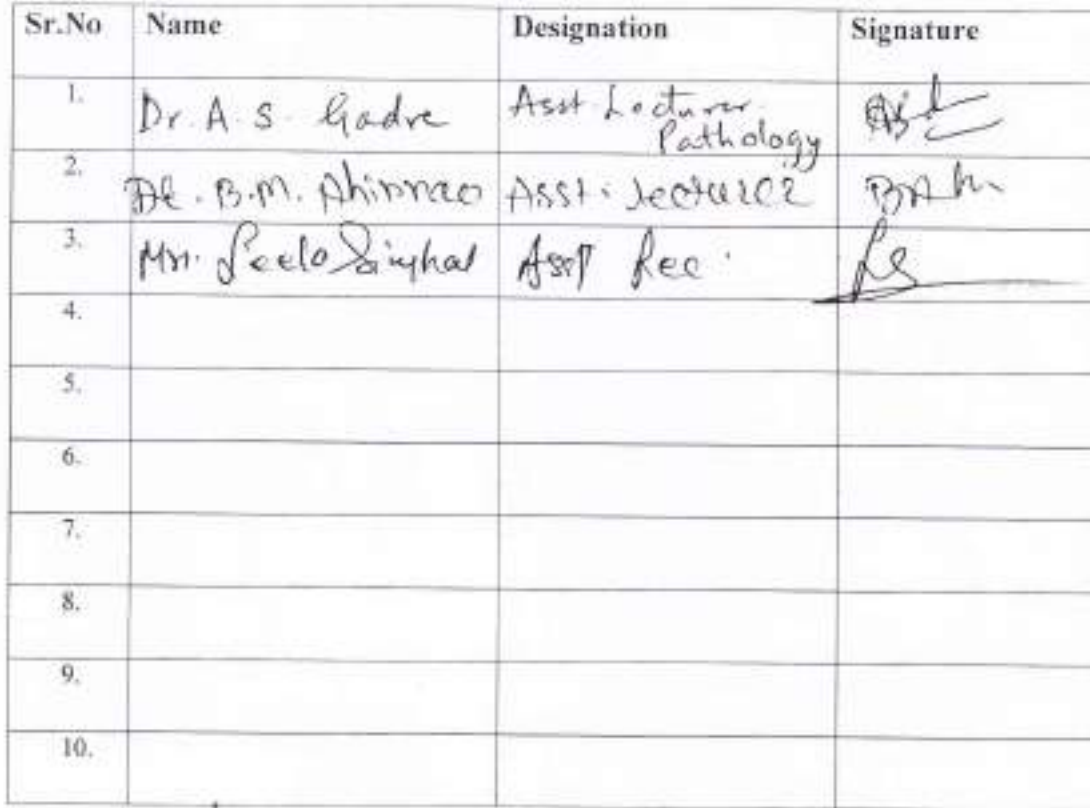 Sr.No Name Designation Signature
1. Dr. A. S. Gadre Asst. Lecturer
Pathology
2. Dr. B.M. Ahirrao Asst. Lecturer
3. Singhal Asst Lec.
4.
5.
6.
7.
8.
9.
10.